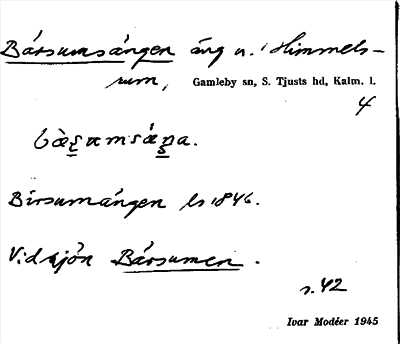 Bársumsängen äng n. i Himmels-
rum, Gamleby sn, S. Tjusts hd, Kalm. l.
4
Birsumängen ls 1846.
Vid sjön Bårsumen.
s. 42
Ivar Modéer 1945